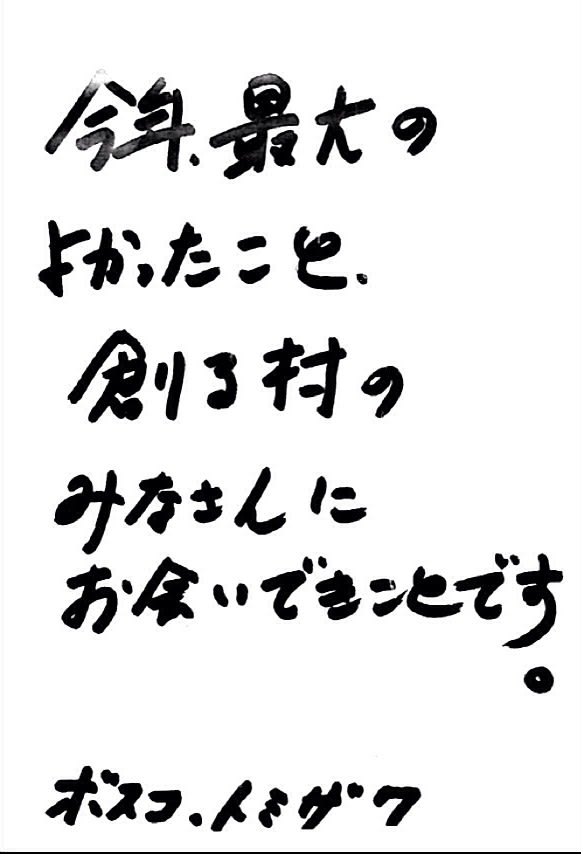 今年、最大の
よかったこと、
創る村の
みなさんに
お会いできことです
。
ボスコ、トミザワ